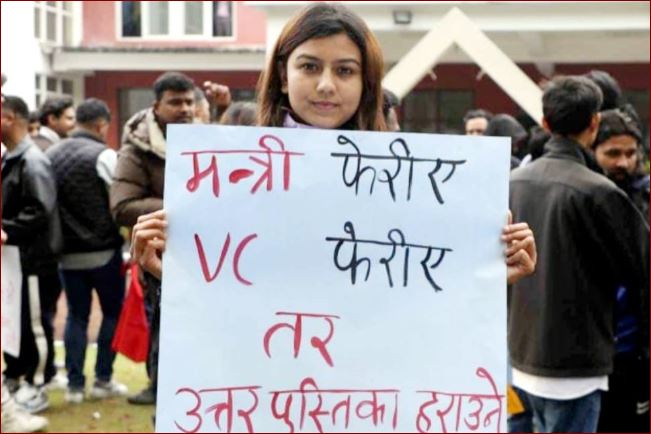 मन्त्री फेरीए
VC फेरीए
तर
उत्तर पुस्तिका हराउने